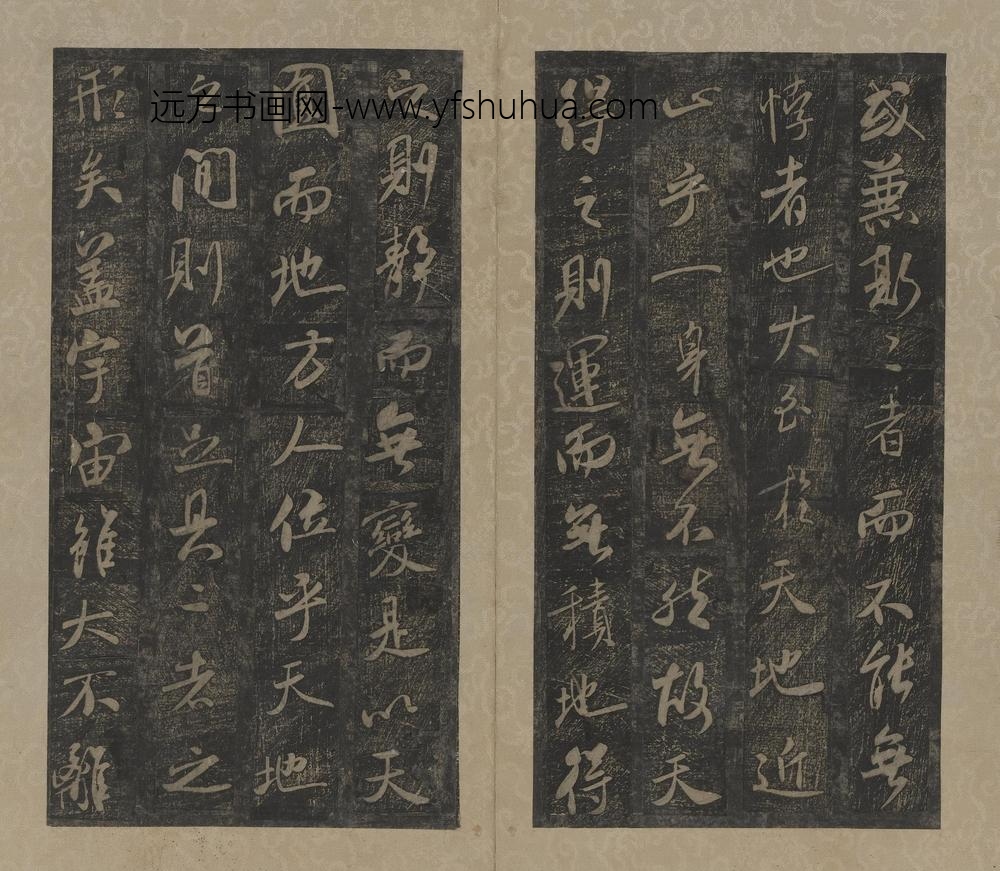 远方书画网-www.yfshuhua.com
或兼斯二者而不能無
悖者也大至於天地近
止乎一身無不然故天
得之則運而無積地得
之則靜而無變是以天
圓而地方人位乎天地
之間則首足具二者之
形矣蓋宇宙雖大不離